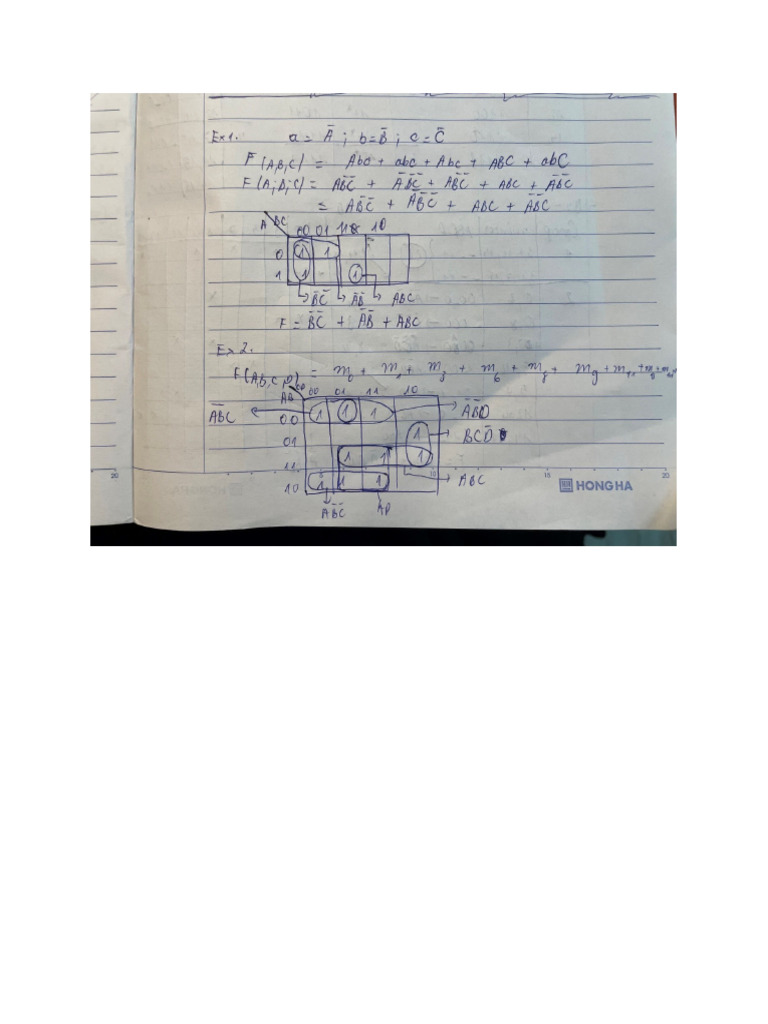 Ex1. a = A̅ ; b = B̅ ; c = C̅
F(A,B,C) = Abc + abc + Abc + ABC + abC
F(A,B,C) = AB̅C̅ + A̅B̅C̅ + AB̅C̅ + ABC + A̅B̅C
= AB̅C̅ + A̅B̅C̅ + ABC + A̅B̅C
A BC
00 01 11 10
0 1 1
1 1 1
B̅C̅ A̅B̅ ABC
F = B̅C̅ + A̅B̅ + ABC
Ex 2.
F(A,b,c,D) = m0 + m1 + m3 + m6 + m8 + m9 +
AB 00 01 11 10
A̅B̅C̅ 00 1 1 1 A̅B̅D
01 1 BCD̅
11 1 1 1
10 1 1 1 ABC
AB̅C̅ AD
20 10 15 HONG HA 20
HONG HA